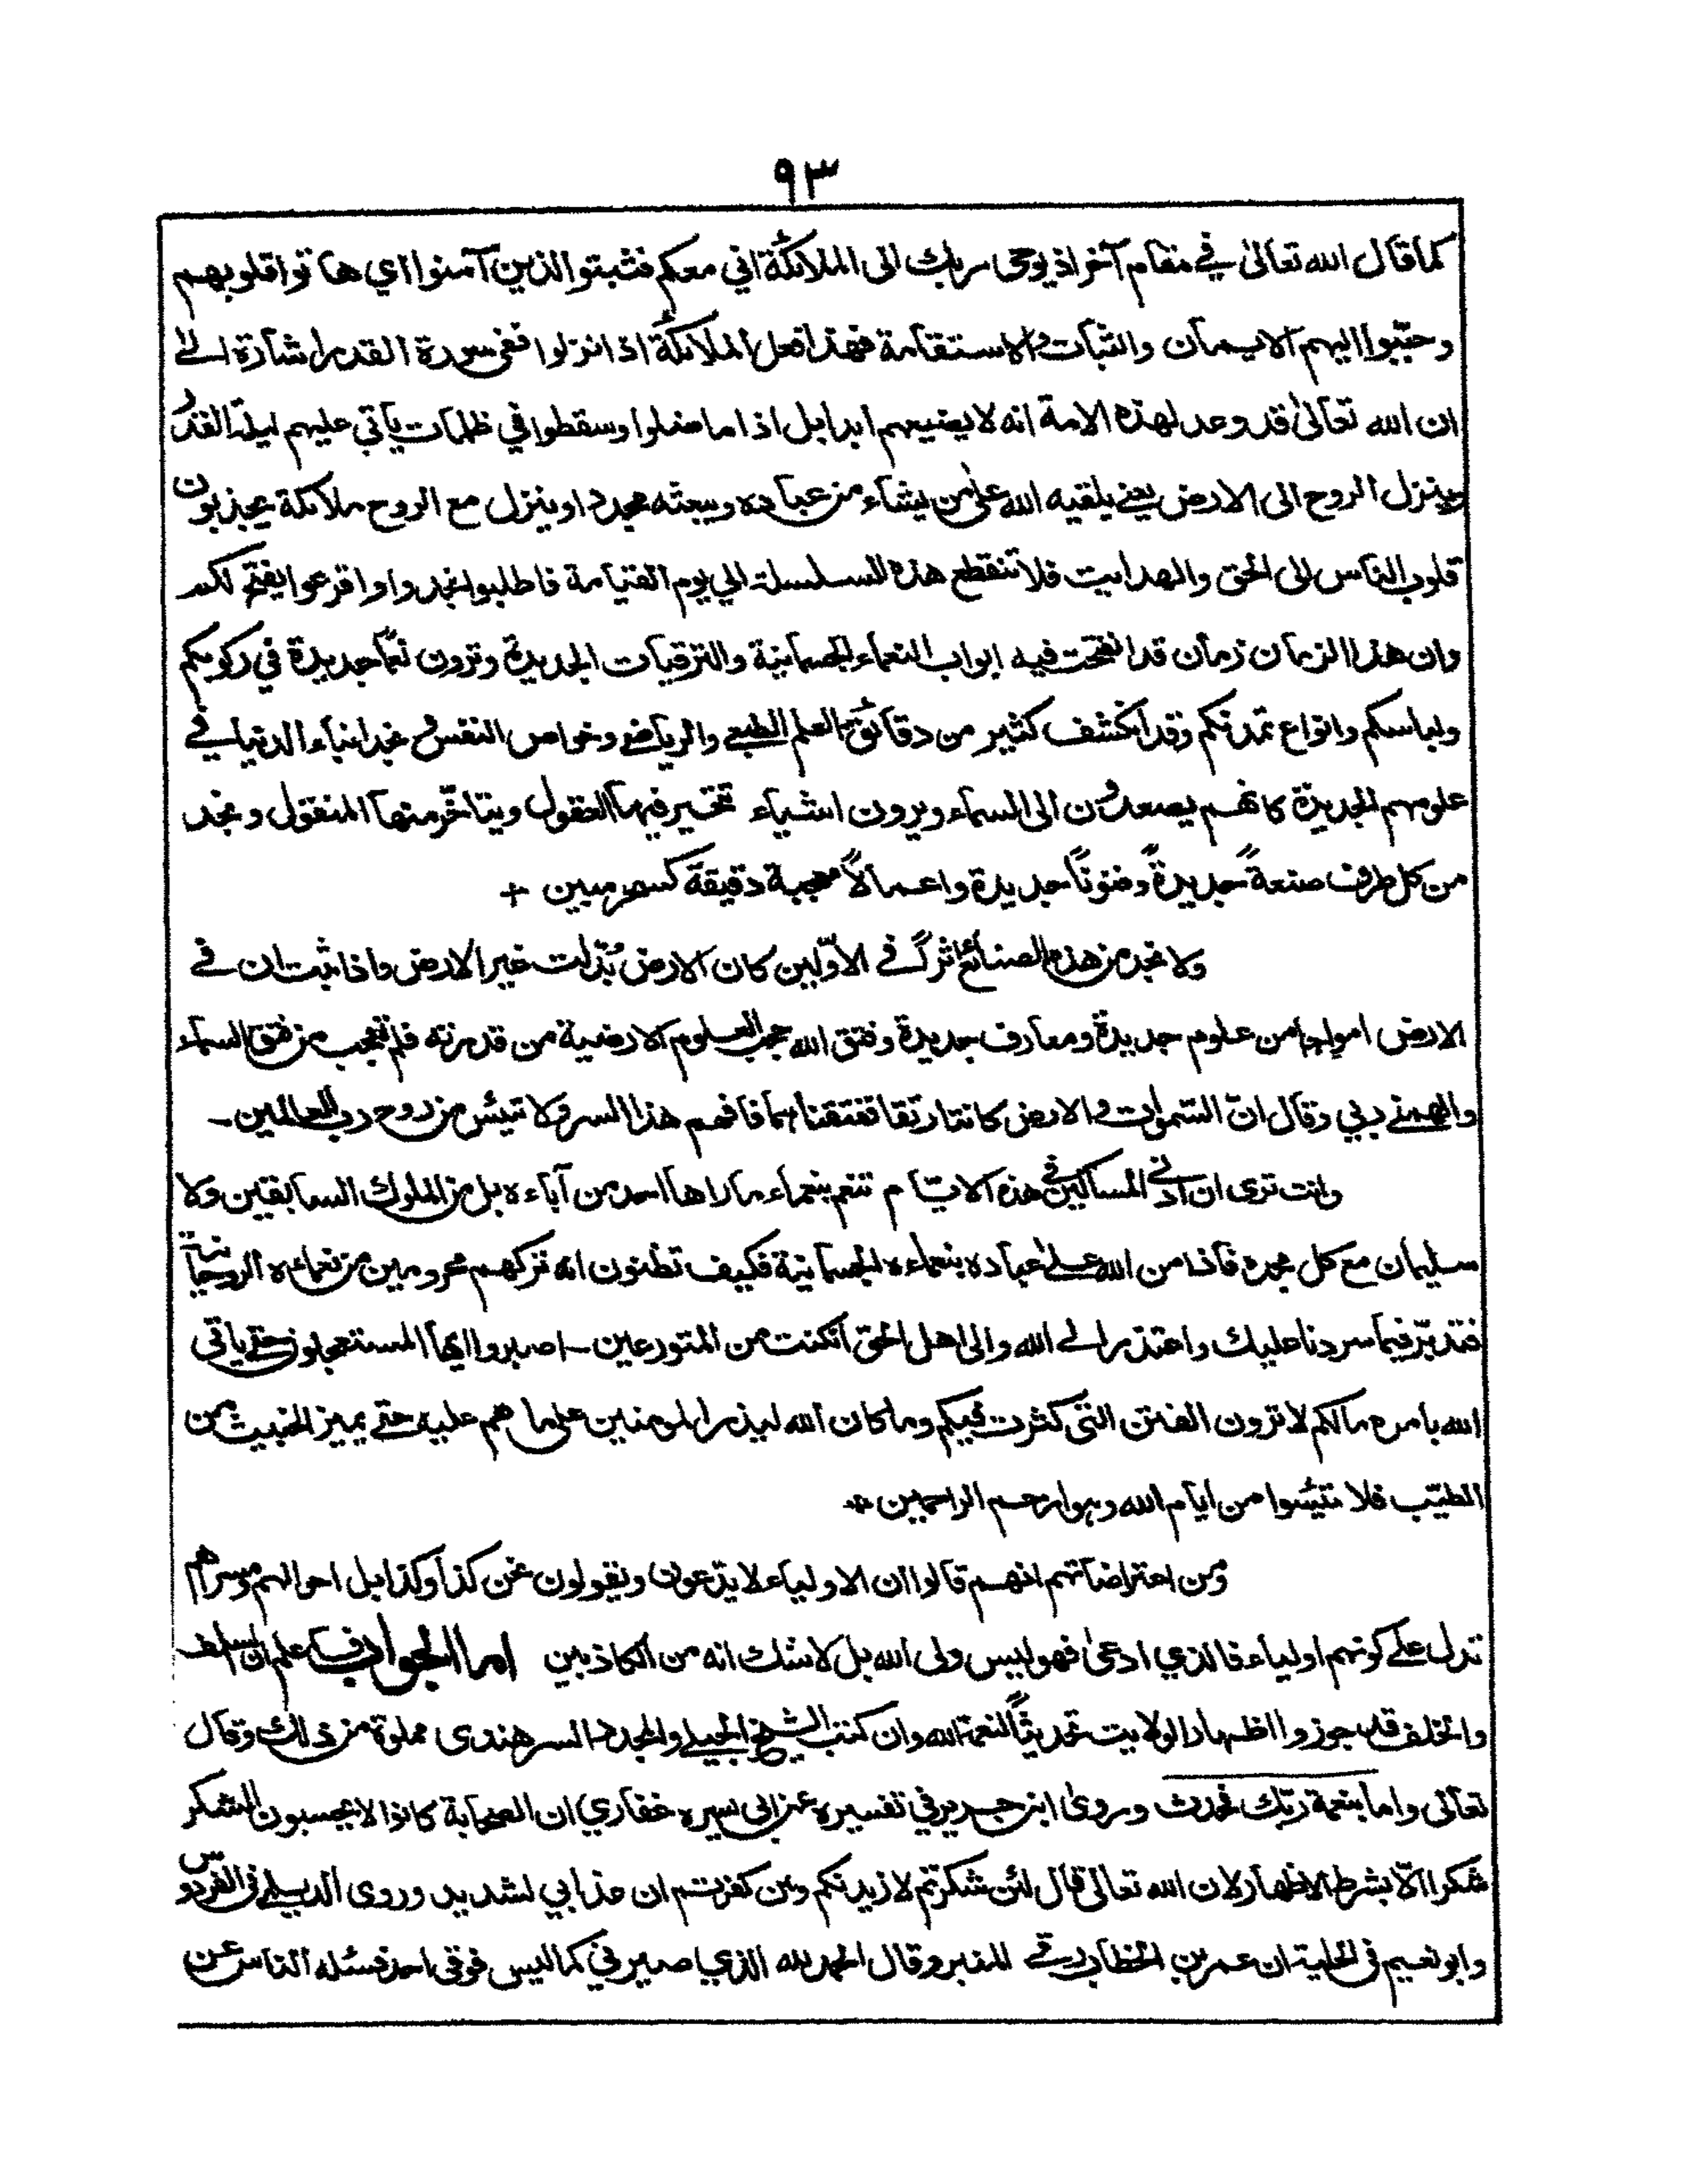 ٩٣
كما قال الله تعالىٰ في مقام آخر اذ يوحى ربك الى الملائكة اني معكم فثبتوا الذين آمنوا اي هاتوا قلوبهم
وحبّبوا اليهم الايمان والثبات والاستقامة فهذا فعل الملائكة اذا نزلوا ففى سورة القدر اشارة الى
ان الله تعالىٰ قد وعد لهذه الامة انه لا يضيعهم ابدا بل اذا ما ضلوا وسقطوا في ظلمات يأتي عليهم ليلة القدر
وينزل الروح الى الارض يعنے يلقيه الله على من يشاء من عباده ويبعثه مجددا وينزل مع الروح ملائكة يجذبون
قلوب الناس الى الحق والهدايت فلا تنقطع هذه السلسلة الي يوم القيامة فاطلبوا تجدوا واقرعوا يفتح لكم
وان هذا الزمان زمان قد انفتحت فيه ابواب النعماء الجسمانية والترقيات الجديدة وترون نعمًا جديدة في ركوبكم
ولباسكم وانواع تمدنكم وقد انكشف كثير من دقائق العلم الطبعي والرياضے وخواص النفس نجد ابناء الدنيا في
علومهم الجديدة كانهم يصعدون الى السماء ويرون اشياء تتحير فيها العقول ويتأخّر منها المنقول ونجد
من كل طرف صنعةً جديدةً وفنونًا جديدة واعمالاً معجبة دقيقة كسحر مبين +
ولا نجد من هذه الصنائع اثرًا في الاوّلين كان الارض بُدّلت غير الارض واذا ثبت ان في
الارض امواجا من علوم جديدة ومعارف جديدة وفتق الله حجب العلوم الارضية من قدرته فلم تعجب من فتق السماء
والهمنے ربي وقال انّ السمٰوات والارض كانتا رتقا ففتقناهما فافهم هذا السر ولا تيئس من روح رب العالمين ـ
وانت ترى ان ادنى المساكين في هذه الايام تنعم بنعماء ما راها احد من آباءه بل من الملوك السابقين ولا
سليمان مع كل مجده فاذا من الله على عباده بنعماءه الجسمانية فكيف تظنون انه تركهم محرومين من نعمائه الروحانية
فتدبّر فيما سردنا عليك واعتذر الى الله والى اهل الحق ان كنت من المتورعين ـ اصبروا ايها المستعجلون حتے ياتي
الله بامره مالكم لا ترون الفتن التي كثرت فيكم وما كان الله ليذر المومنين على ما هم عليه حتے يميز الخبيث من
الطيّب فلا تيئسوا من ايام الله وهو ارحم الراحمين +
ومن اعتراضاتهم انهم قالوا ان الاولياء لا يدّعون ويقولون نحن كذا وكذا بل احوالهم وسرهم
تدل على كونهم اولياء فالذي ادعىٰ فهو ليس ولى الله بل لا شك انه من الكاذبين اما الجواب فاعلم ان السلف
والخلف قد جوزوا اظهار الولايت تحديثًا لنعمة الله وان كتب الشيخ الجيلي والمجدد السرهندى مملوة من ذالك وقال
تعالى واما بنعمة ربّك فحدث وروىٰ ابن جرير في تفسيره عن ابى يسره غفاري ان الصحابة كانوا لا يحسبون الشكر
شكرا الّا بشرط الاظهار لان الله تعالى قال لئن شكرتم لازيدنكم ولئن كفرتم ان عذابي لشديد وروى الديلمي فى الفردوس
وابو نعيم فى الحلية ان عمر بن الخطاب رقے المنبر وقال الحمد لله الذي صيرني كما ليس فوقي احد فسئله الناس عن